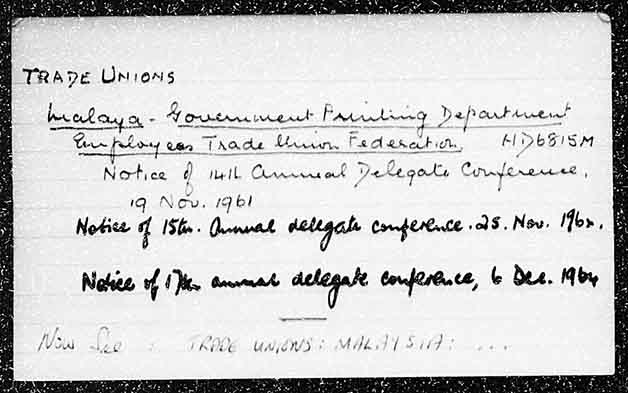 TRADE UNIONS
Malaya - Government Printing Department
Employees Trade Union Federation. HD6815M
Notice of 14th Annual Delegate Conference,
19 Nov. 1961
Notice of 15th. Annual delegate conference. 25. Nov. 1962.
Notice of 17th annual delegate conference, 6 Dec. 1964
Now See : TRADE UNIONS: MALAYSIA: ...